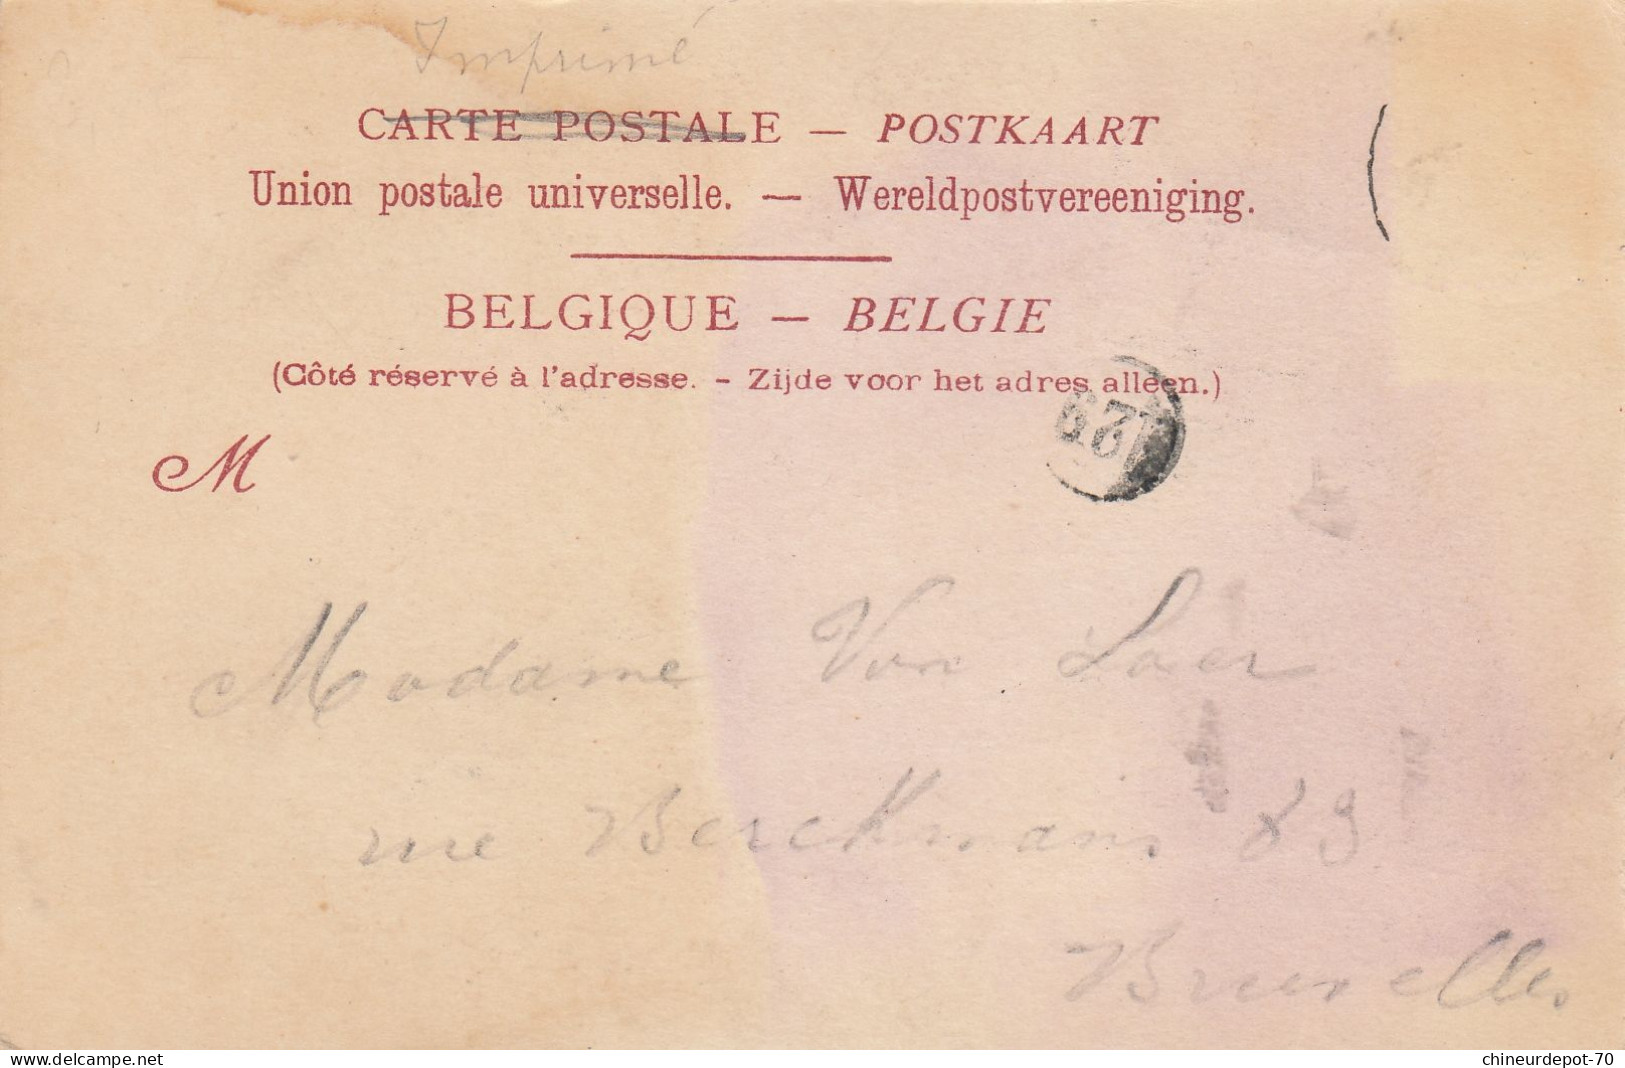 Imprimé
CARTE POSTALE — POSTKAART
Union postale universelle. — Wereldpostvereeniging.
BELGIQUE — BELGIE
(Côté réservé à l'adresse. - Zijde voor het adres alleen.)
129
M
Madame Von Laer
rue Berckmans 89
Bruxelles
www.delcampe.net
chineurdepot-70